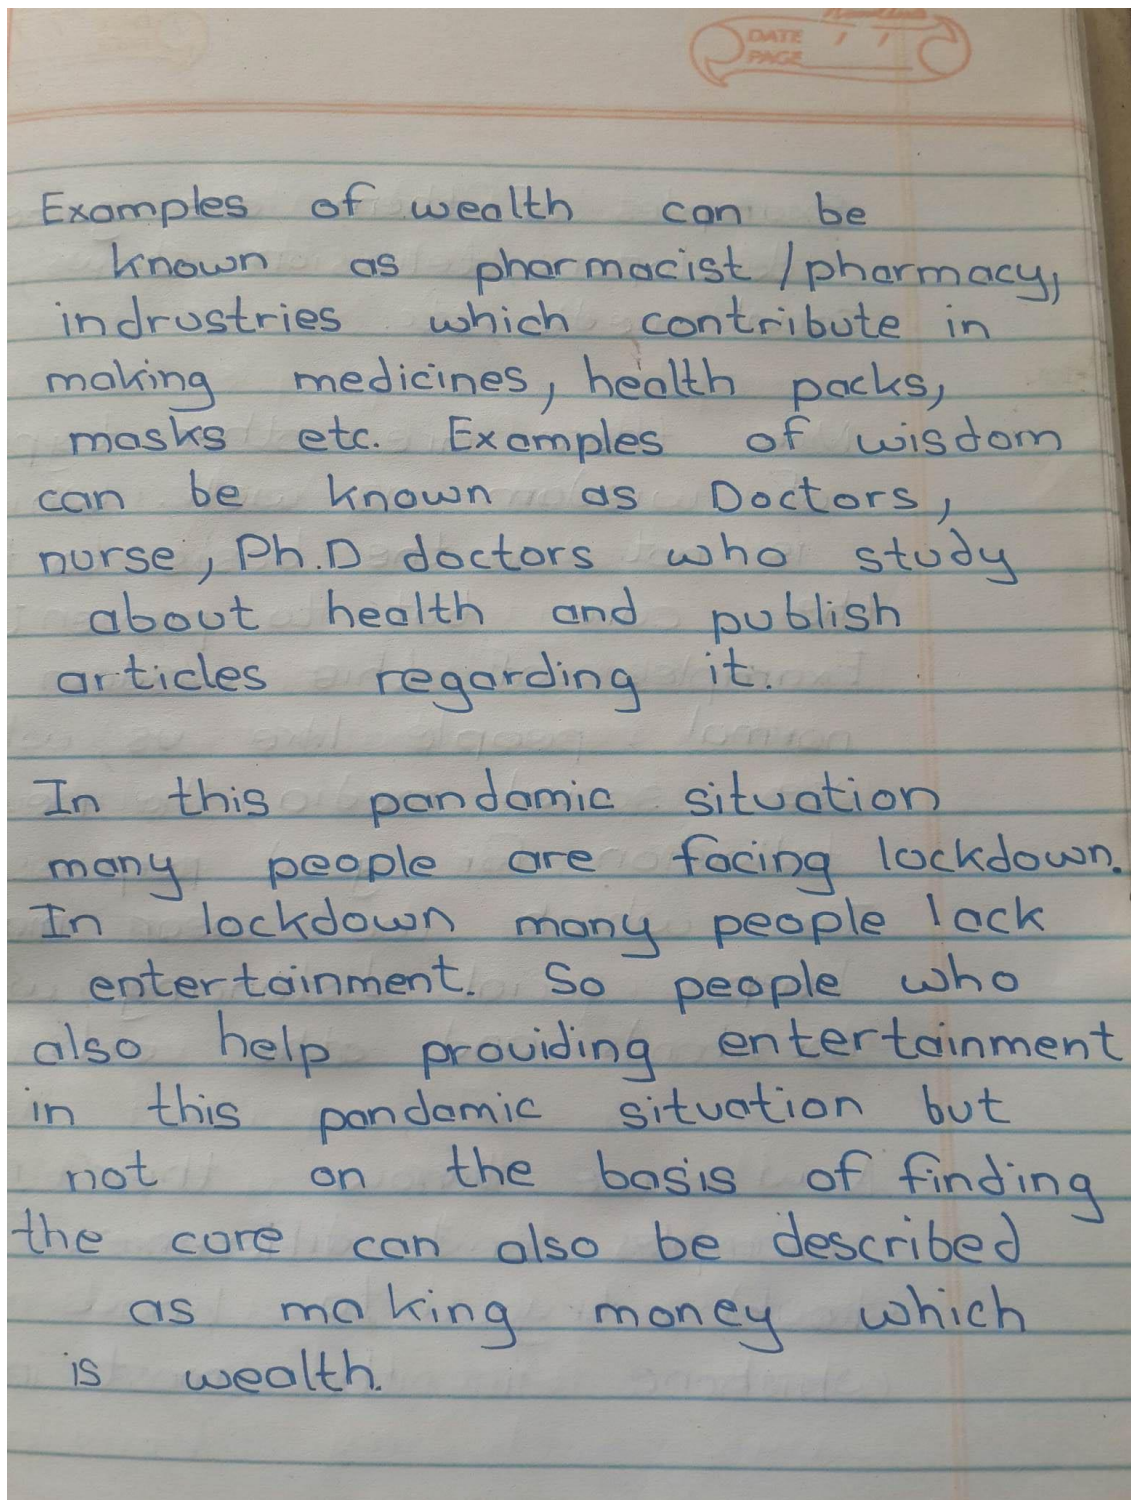 DATE
PAGE
Examples of wealth can be
known as pharmacist / pharmacy,
indrustries which contribute in
making medicines, health packs,
masks etc. Examples of wisdom
can be known as Doctors,
nurse, Ph.D doctors who study
about health and publish
articles regarding it.
In this pandamic situation
many people are facing lockdown.
In lockdown many people lack
entertainment. So people who
also help providing entertainment
in this pandamic situation but
not on the basis of finding
the core can also be described
as making money which
is wealth.